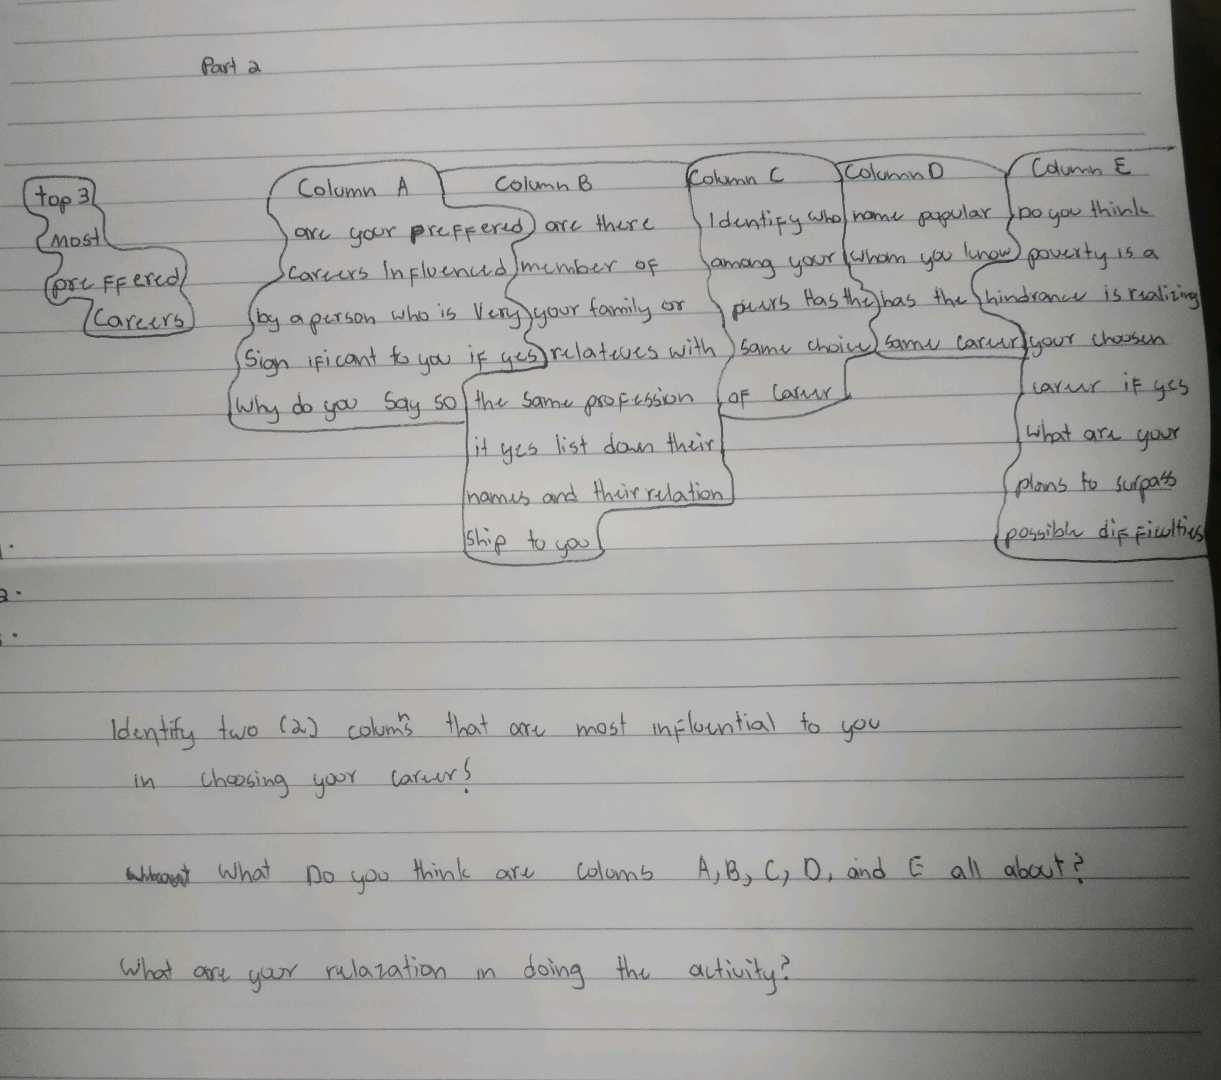 Part 2
top 3
most
preffered
Careers
Column A
are your preffered
Careers Influenced
by a person who is Very
Significant to you if yes
Why do you Say so
Column B
are there
member of
your family or
relateves with
the same profession
it yes list down their
names and their relation
ship to you
Column C
Identify who
among your
peers Has the
same choice
of Career
Column D
name popular
whom you know
has the
same career
Column E
Do you think
poverty is a
hindrance is realizing
your choosen
career if yes
what are your
plans to surpass
possible difficulties
2.
Identify two (2) colum's that are most influential to you
in choosing your career?
What Do you think are Colums A, B, C, D, and E all about?
What are your rulazation in doing the activity?